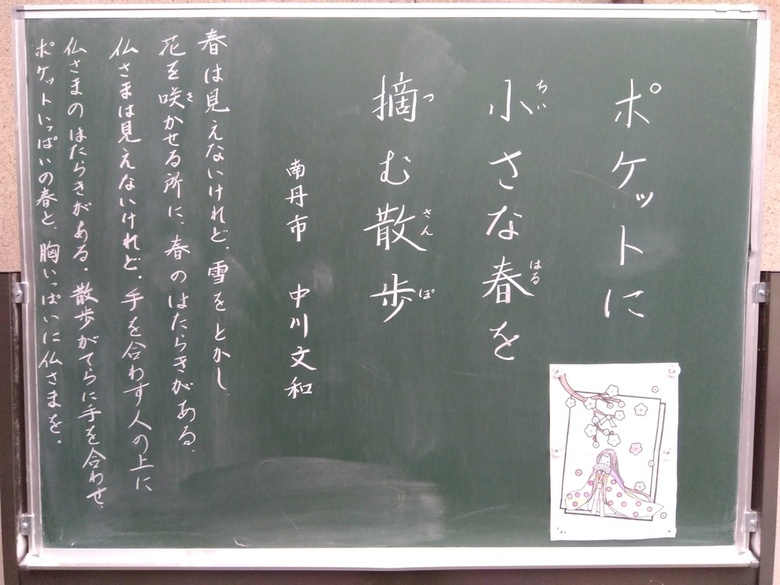 ポケットに
小さな春を
摘む散歩
南丹市 中川文和
春は見えないけれど、雪をとかし、
花を咲かせる所に、春のはたらきがある。
仏さまは見えないけれど、手を合わす人の上に
仏さまのはたらきがある。散歩がてらに手を合わせ、
ポケットいっぱいの春と、胸いっぱいに仏さまを。